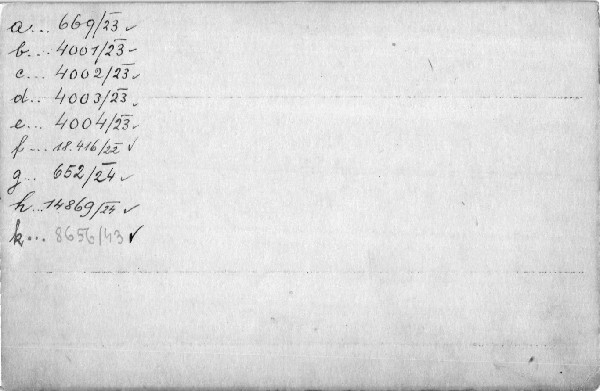 a... 669/23 ✓
b... 4001/23 ✓
c... 4002/23 ✓
d... 4003/23 ✓
e... 4004/23 ✓
f... 18.416/22 ✓
g... 652/24 ✓
h... 14869/24 ✓
k... 8656/43 ✓